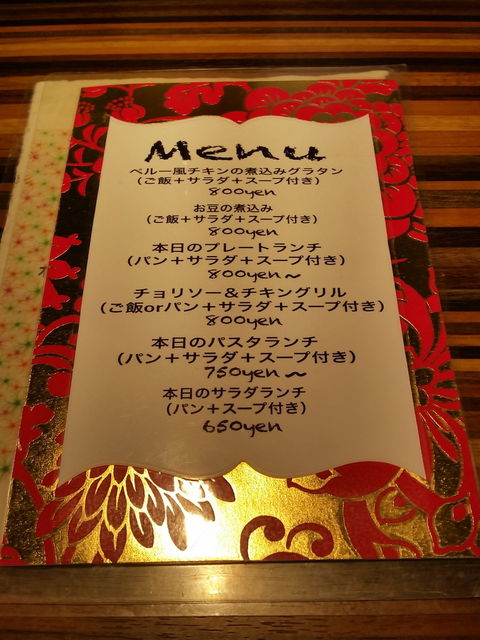 Menu
ペルー風チキンの煮込みグラタン
（ご飯＋サラダ＋スープ付き）
800yen
お豆の煮込み
（ご飯＋サラダ＋スープ付き）
800yen
本日のプレートランチ
（パン＋サラダ＋スープ付き）
800yen～
チョリソー＆チキングリル
（ご飯orパン＋サラダ＋スープ付き）
800yen
本日のパスタランチ
（パン＋サラダ＋スープ付き）
750yen～
本日のサラダランチ
（パン＋スープ付き）
650yen